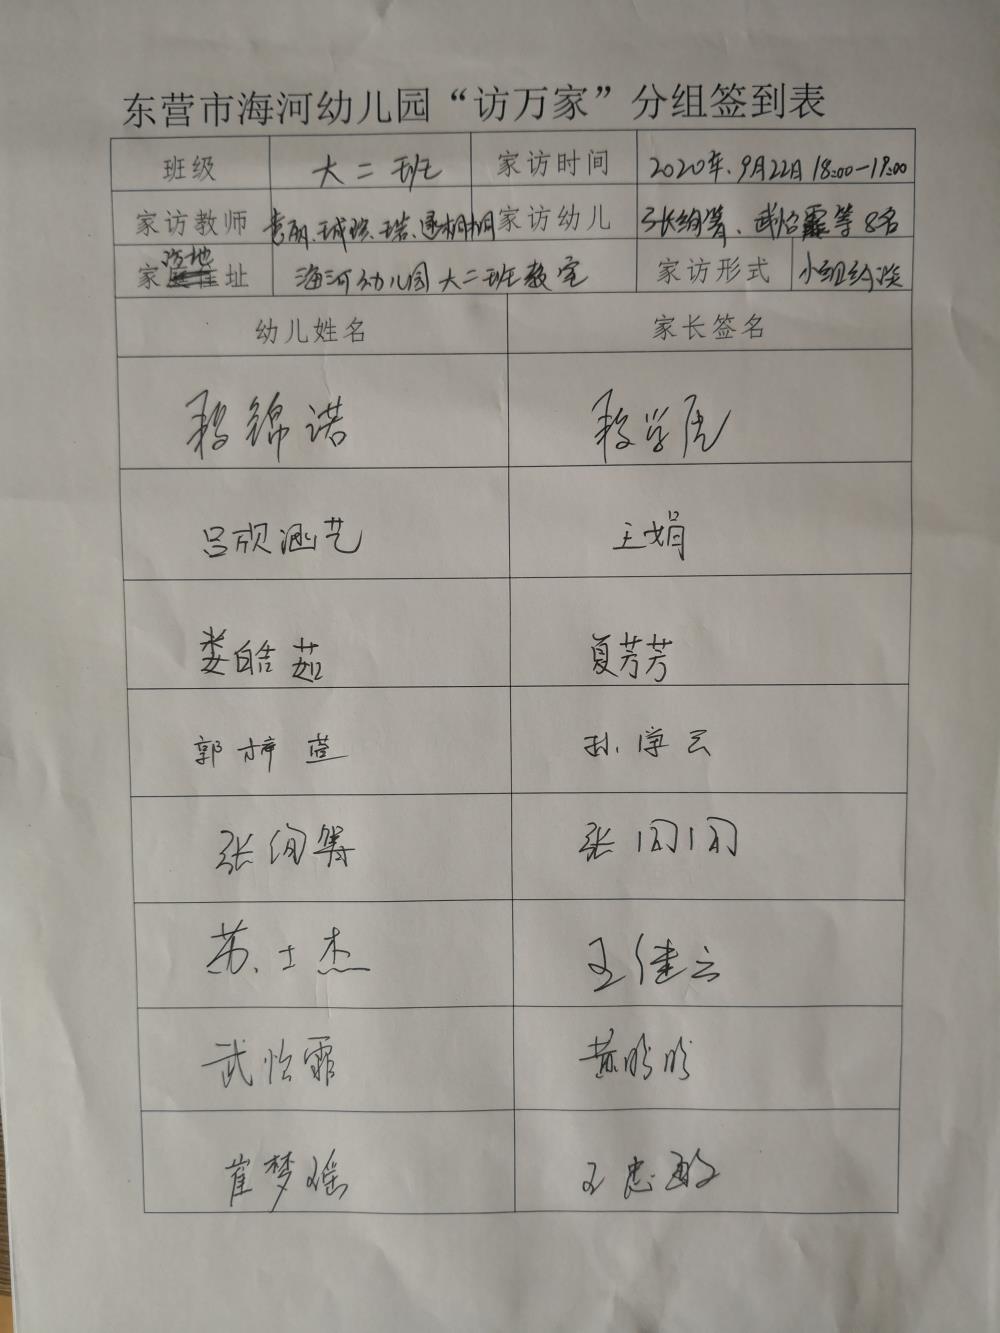 东营市海河幼儿园“访万家”分组签到表
班级 大二班 家访时间 2020年9月22日 18:00-19:00
家访教师 李丽、 家访幼儿 张绚箬、武怡霏等8名
家访地址 海河幼儿园大二班教室 家访形式 小组约谈
幼儿姓名 家长签名
锦诺 学虎
吕颀涵艺 王娟
娄皓茹 夏芳芳
郭梓萱 孙学云
张绚箬 张闰闰
苏士杰 王佳云
武怡霏 黄盼盼
崔梦瑶 王忠敏